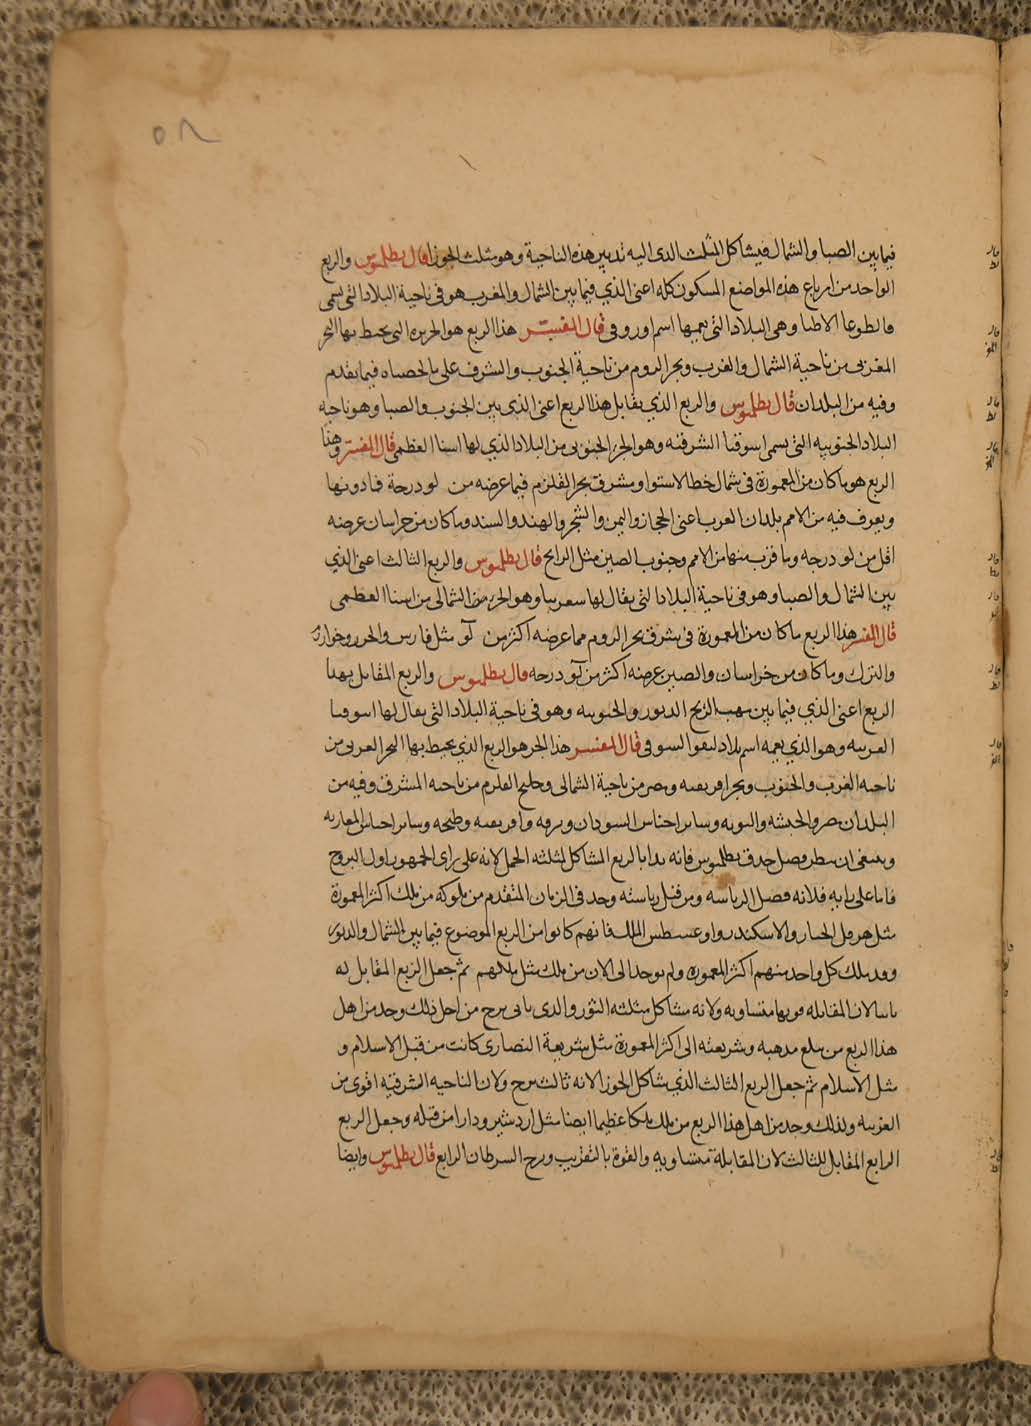 ٥٨
فيما بين الصبا والشمال فيشاكل المثلث الذى اليه تدبير هذه الناحية وهو مثلث الجوزا قال بطلميوس والربع
الواحد من ارباع هذه المواضع المسكون كله اعنى الذي فيما بين الشمال والمغرب هو في ناحية البلاد التى تسمى
قالطوغالاطيا وهى البلاد التى يعمها اسم اوروفى قال المفسر هذا الربع هو الجزيره التى يحيط بها البحر
المغربى من ناحية الشمال والغرب وبحر الروم من ناحية الجنوب والشرف على ما لخصناه فيما تقدم
وفيه من البلدان قال بطلميوس والربع الذي يقابل هذا الربع اعنى الذى بين الجنوب والصبا وهو ناحيه
البلاد الجنوبيه التى تسمى اسوفيا الشرقيه وهو الجزء الجنوبى من البلاد الذي لها اسيا العظمى قال المفسر وهذا
الربع هو ما كان من المعمورة فى شمال خط الاستوا ومشرق بحر القلزم فيما عرضه من لو درجة فما دونها
ويعرف فيه من الامم بلدان العرب اعنى الحجاز واليمن والشحر والهند والسند وما كان من خراسان عرضه
اقل من لو درجه وما قرب منها من الامم وجنوب الصين مثل الرانج قال بطلميوس والربع الثالث اعنى الذي
بين الشمال والصبا وهو فى ناحية البلاد التى يقال لها سقوبيا وهو الجزء الشمالى من اسيا العظمى
قال المفسر هذا الربع ما كان من المعمورة فى شرق بحر الروم مما عرضه اكثر من لو مثل فارس والخزر وخوارزم
والترك وما كان من خراسان والصين عرضه اكثر من لو درجه قال بطلميوس والربع المقابل لهذا
الربع اعنى الذي فيما بين مهب الريح الدبور والجنوبيه وهو فى ناحية البلاد التى يقال لها اسوفيا
الغربيه وهو الذي يعمه اسم بلاد قال المفسر هذا الجزء هو الربع الذي يحيط بها البحر الغربى من
ناحيه الغرب والجنوب وبحر افريقيه ومصر من ناحية الشمالى وخليج القلزم من ناحيه المشرق وفيه من
البلدان مصر والحبشه والنوبه وساير اجناس السودان وبرقه وافريقيه وطنجه وساير اجناس المغاربه
وينبغى ان ننظر فصل حدق بطلميوس فانه بدا بالربع المشاكل لمثلثه الحمل لانه على راى الجمهور اول البروج
فاما على رايه فلانه فصل الرياسه ومن قبل رياسته وجد فى الزمان المتقدم من ملوكه من ملك اكثر المعمورة
مثل هرقل الجبار والاسكندر واوغسطس الملك فانهم كانوا من الربع الموضوع فيما بين الشمال والدبور
وقد ملك كل واحد منهم اكثر المعموره ولم يوجد الى الان من ملك مثل ملكهم ثم جعل الربع المقابل له
ثانيا لان المقابله قوتها متساويه ولانه مشاكل مثلثه الثور والذى ثانى برج من اجل ذلك وجد من اهل
هذا الربع من بلغ مذهبه وشريعته الى اكثر المعمورة مثل شريعة النصارى كانت من قبل الاسلام و
مثل الاسلام ثم جعل الربع الثالث الذي يشاكل الجوزا لانه ثالث برج ولان الناحيه الشرقيه اقوى من
الغربيه ولذلك وجد من اهل هذا الربع من ملك ملكا عظيما ايضا مثل اردشير ودارا من قبله وجعل الربع
الرابع المقابل للثالث لان المقابلة متساويه والقوة بالتقريب وبرج السرطان الرابع قال بطلميوس وايضا